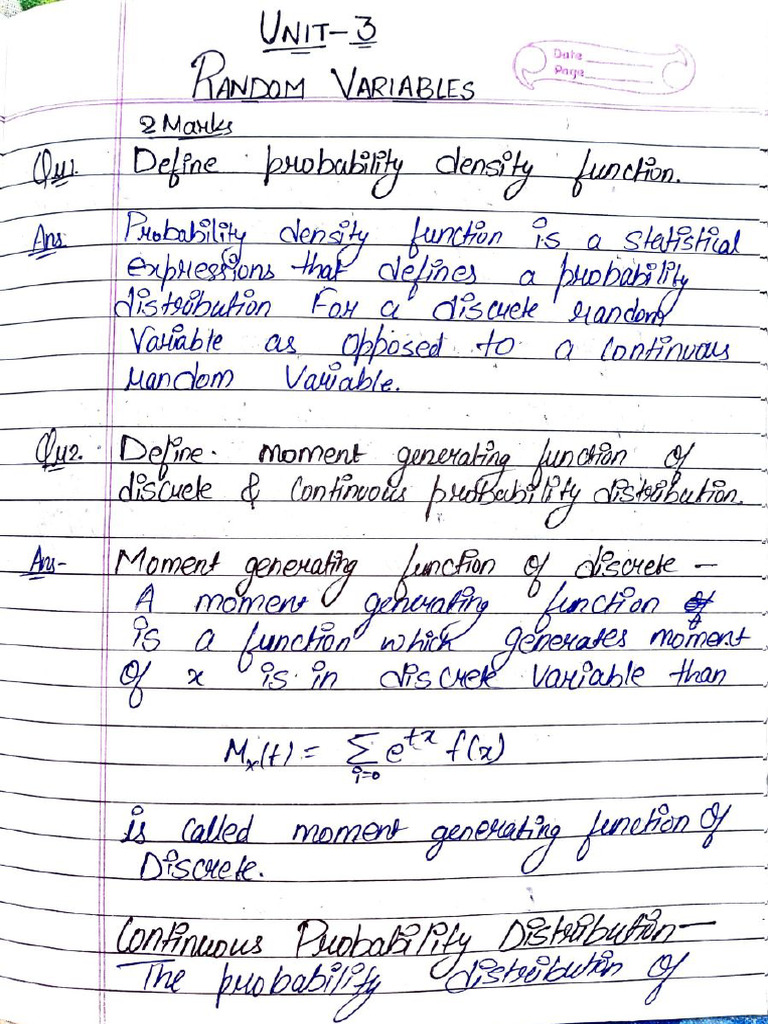 UNIT-3
Date
Page
RANDOM VARIABLES
2 Marks
Qu1. Define probability density function.
Ans Probability density function is a statistical
expressions that defines a probability
distribution For a discrete random
Variable as opposed to a continuous
random Variable.
Qu2. Define. moment generating function of
discrete & continuous probability distribution.
Ans- Moment generating function of discrete -
A moment generating function of
is a function which generates moment
of x is in discrete variable than
Mx(t) = ∑ e^tx f(x)
i=0
is called moment generating function of
Discrete.
Continuous Probability Distribution-
The probability distribution of